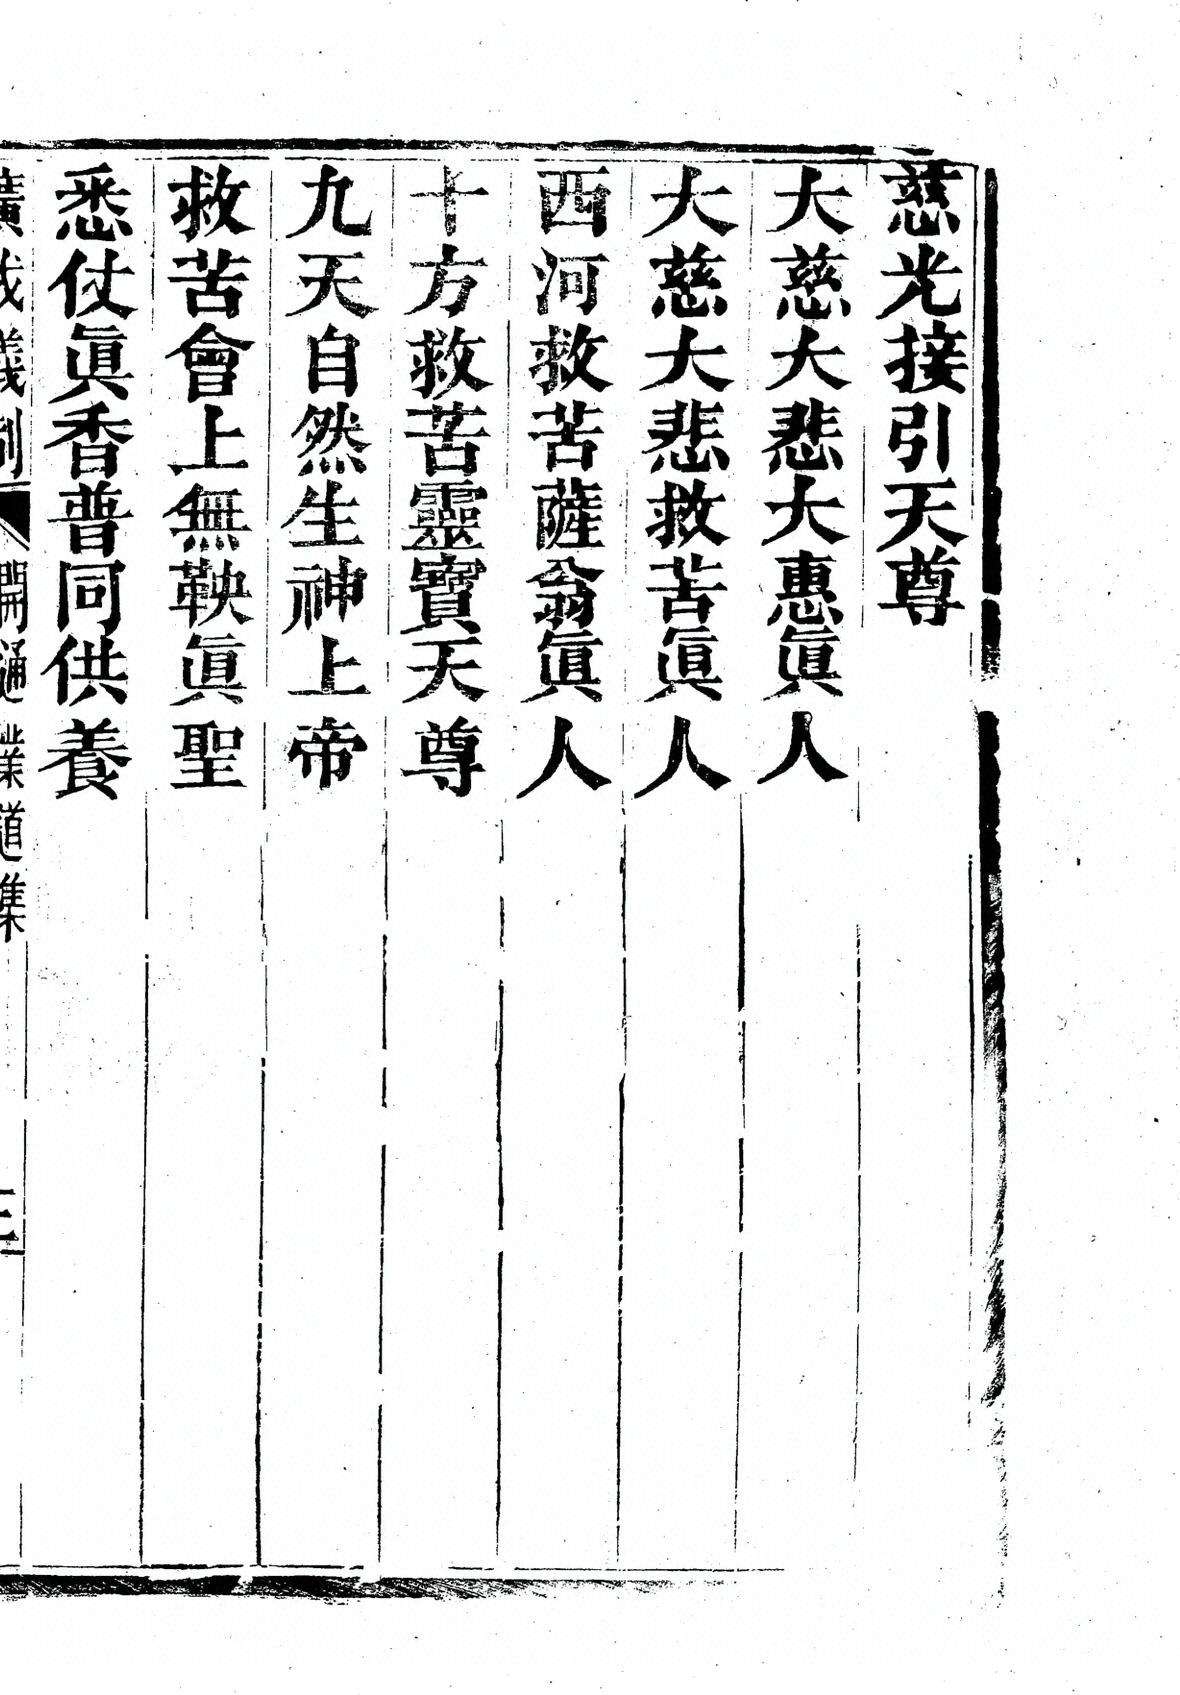 慈光接引天尊
大慈大悲大惠眞人
大慈大悲救苦眞人
西河救苦薩翁眞人
十方救苦靈寶天尊
九天自然生神上帝
救苦會上無鞅眞聖
悉仗眞香普同供養
廣成儀制 開通業道集 三